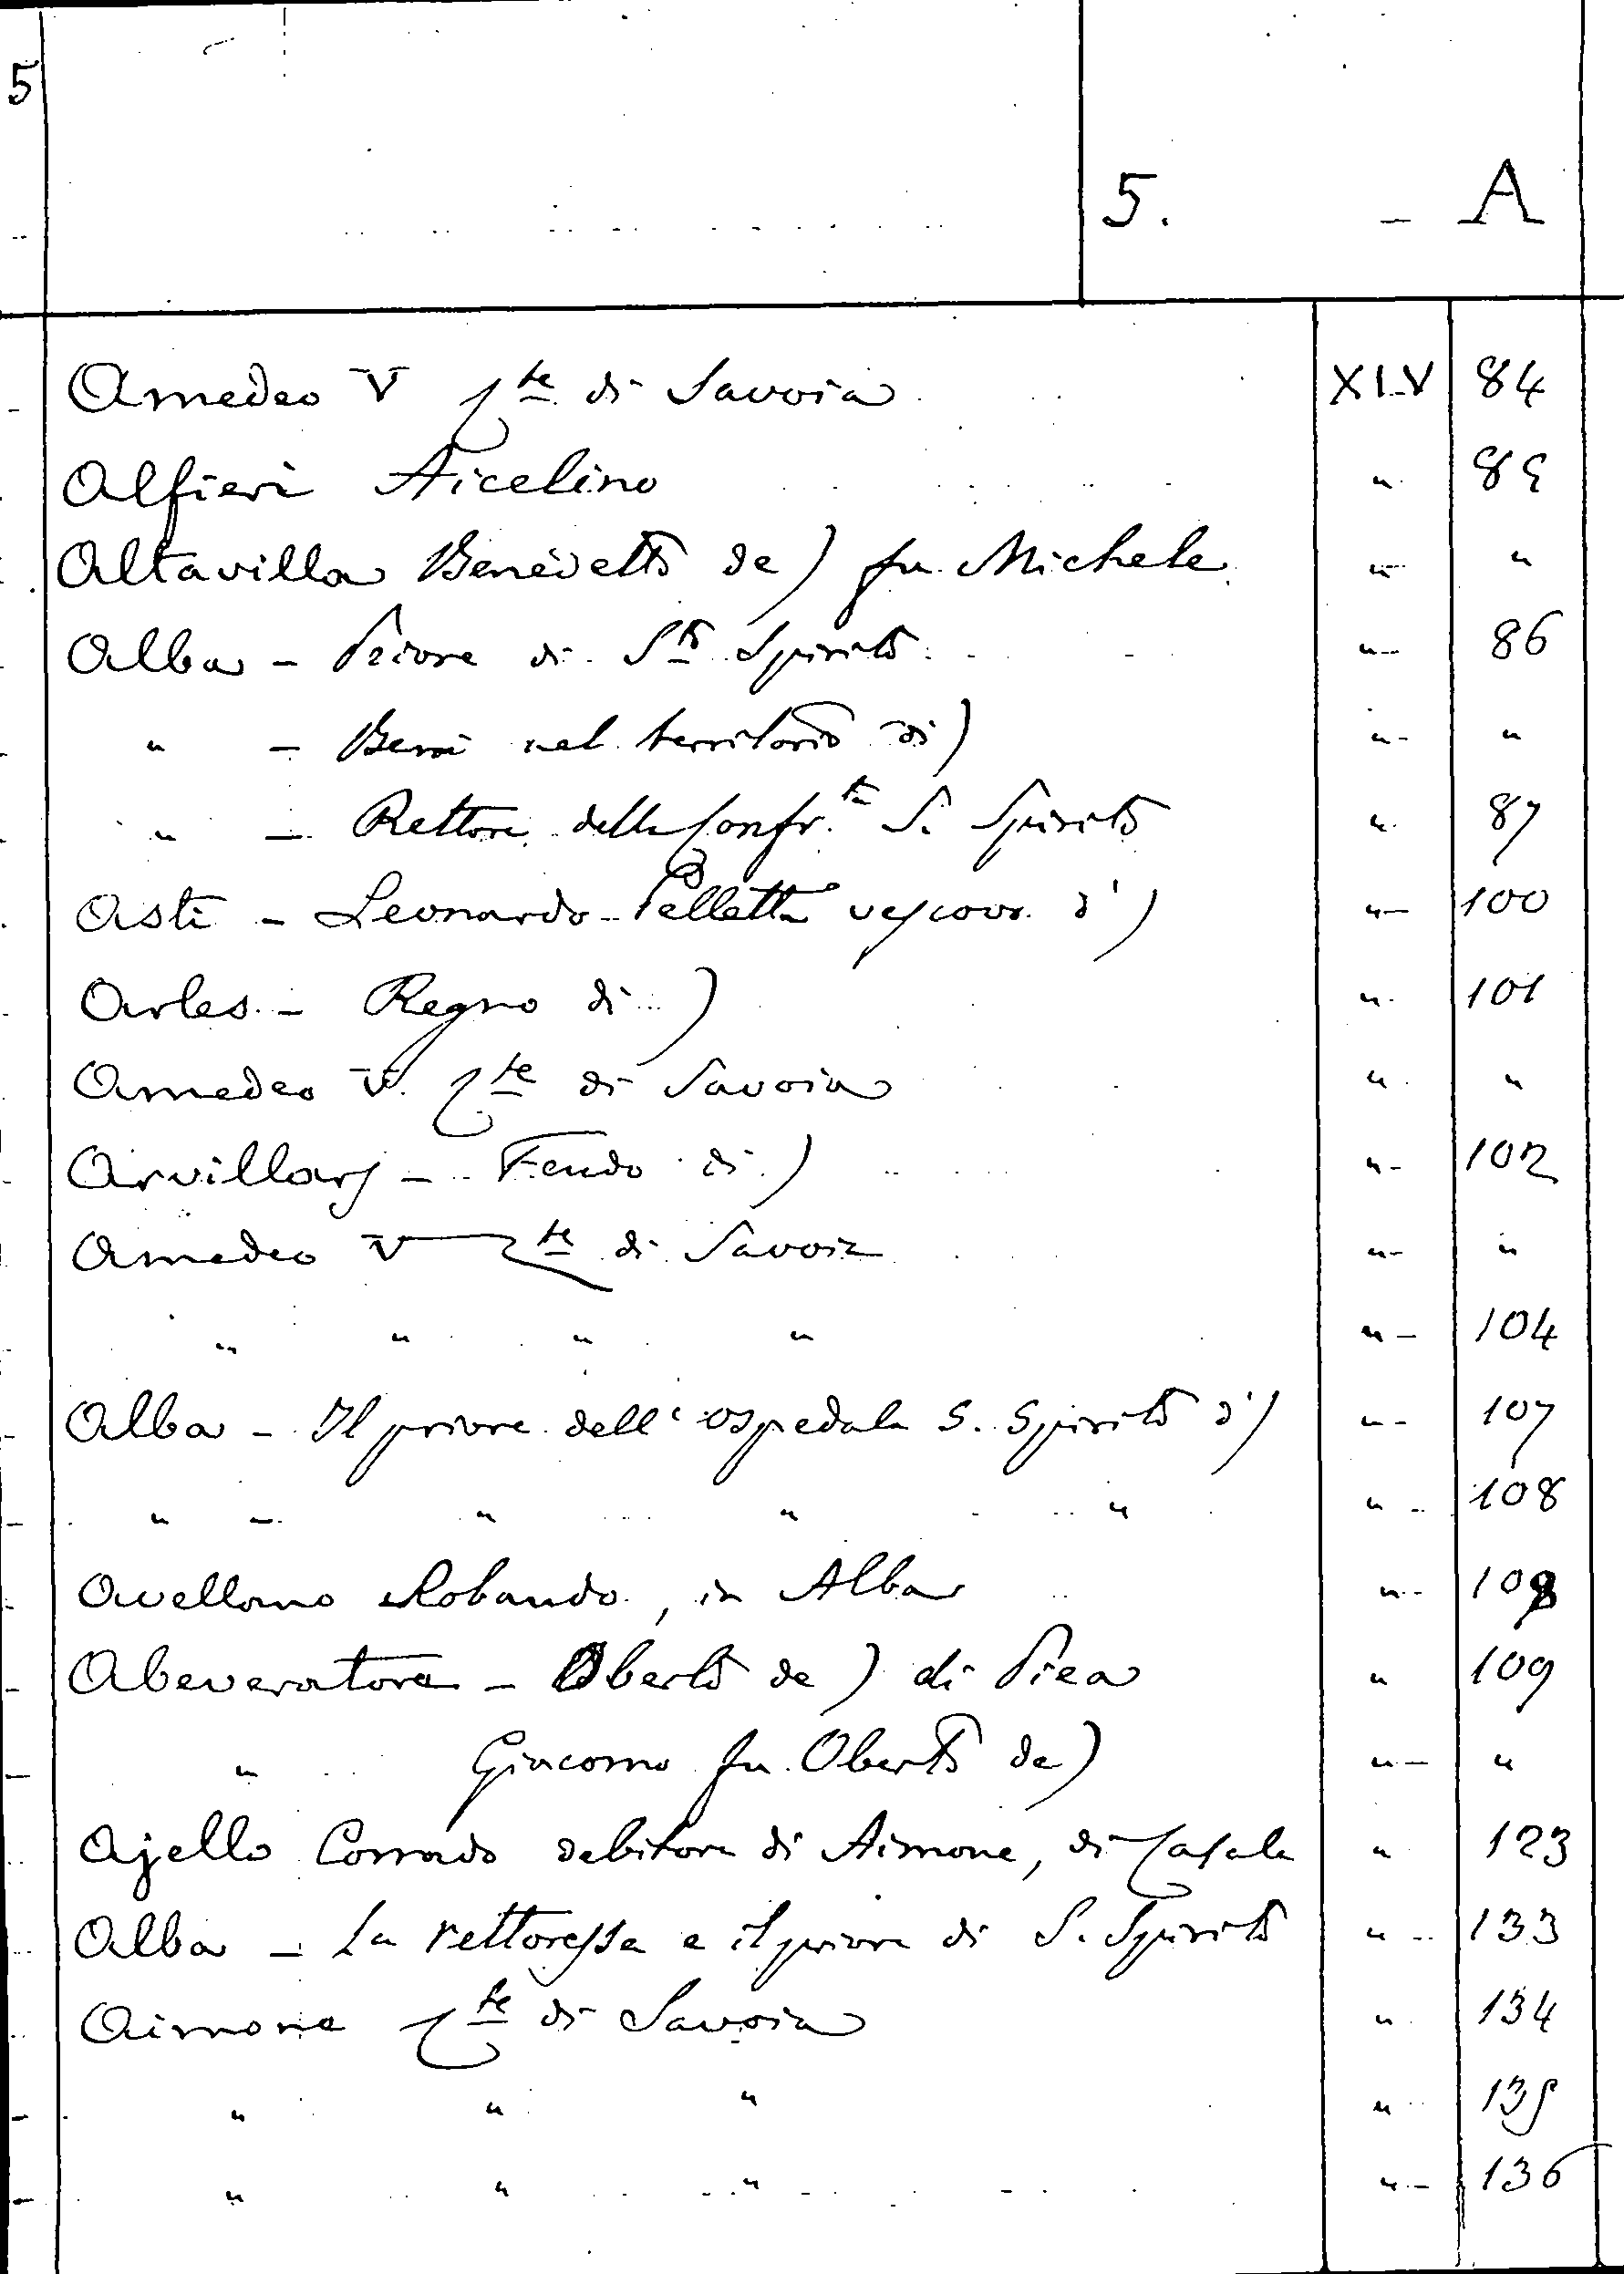 5
5. - A
Amedeo V Cte di Savoia XLV 84
Alfieri Aicelino " 85
Altavilla Benedetto de) fu Michele " "
Alba - Priore di Sto Spirito " 86
" - Beni nel territorio di) " "
" - Rettore della Confr.ta S. Spirito " 87
Asti - Leonardo Pelletta vescovo d') " 100
Arles - Regno di) " 101
Amedeo V. Cte di Savoia " "
Arvillars - Feudo di) " 102
Amedeo V Cte di Savoia " "
" " " " " 104
Alba - Il priore dell'ospedale S. Spirito d') " 107
" - " " " " 108
Avellano Robaudo, in Alba " 108
Abeveratore - Oberto de) di Piea " 109
" Giacomo fu Oberto de) " "
Ajello Corrado debitore di Aimone, di Casale " 123
Alba - La rettoressa e il priore di S. Spirito " 133
Aimone Cte di Savoia " 134
" " " " 135
" " " " 136